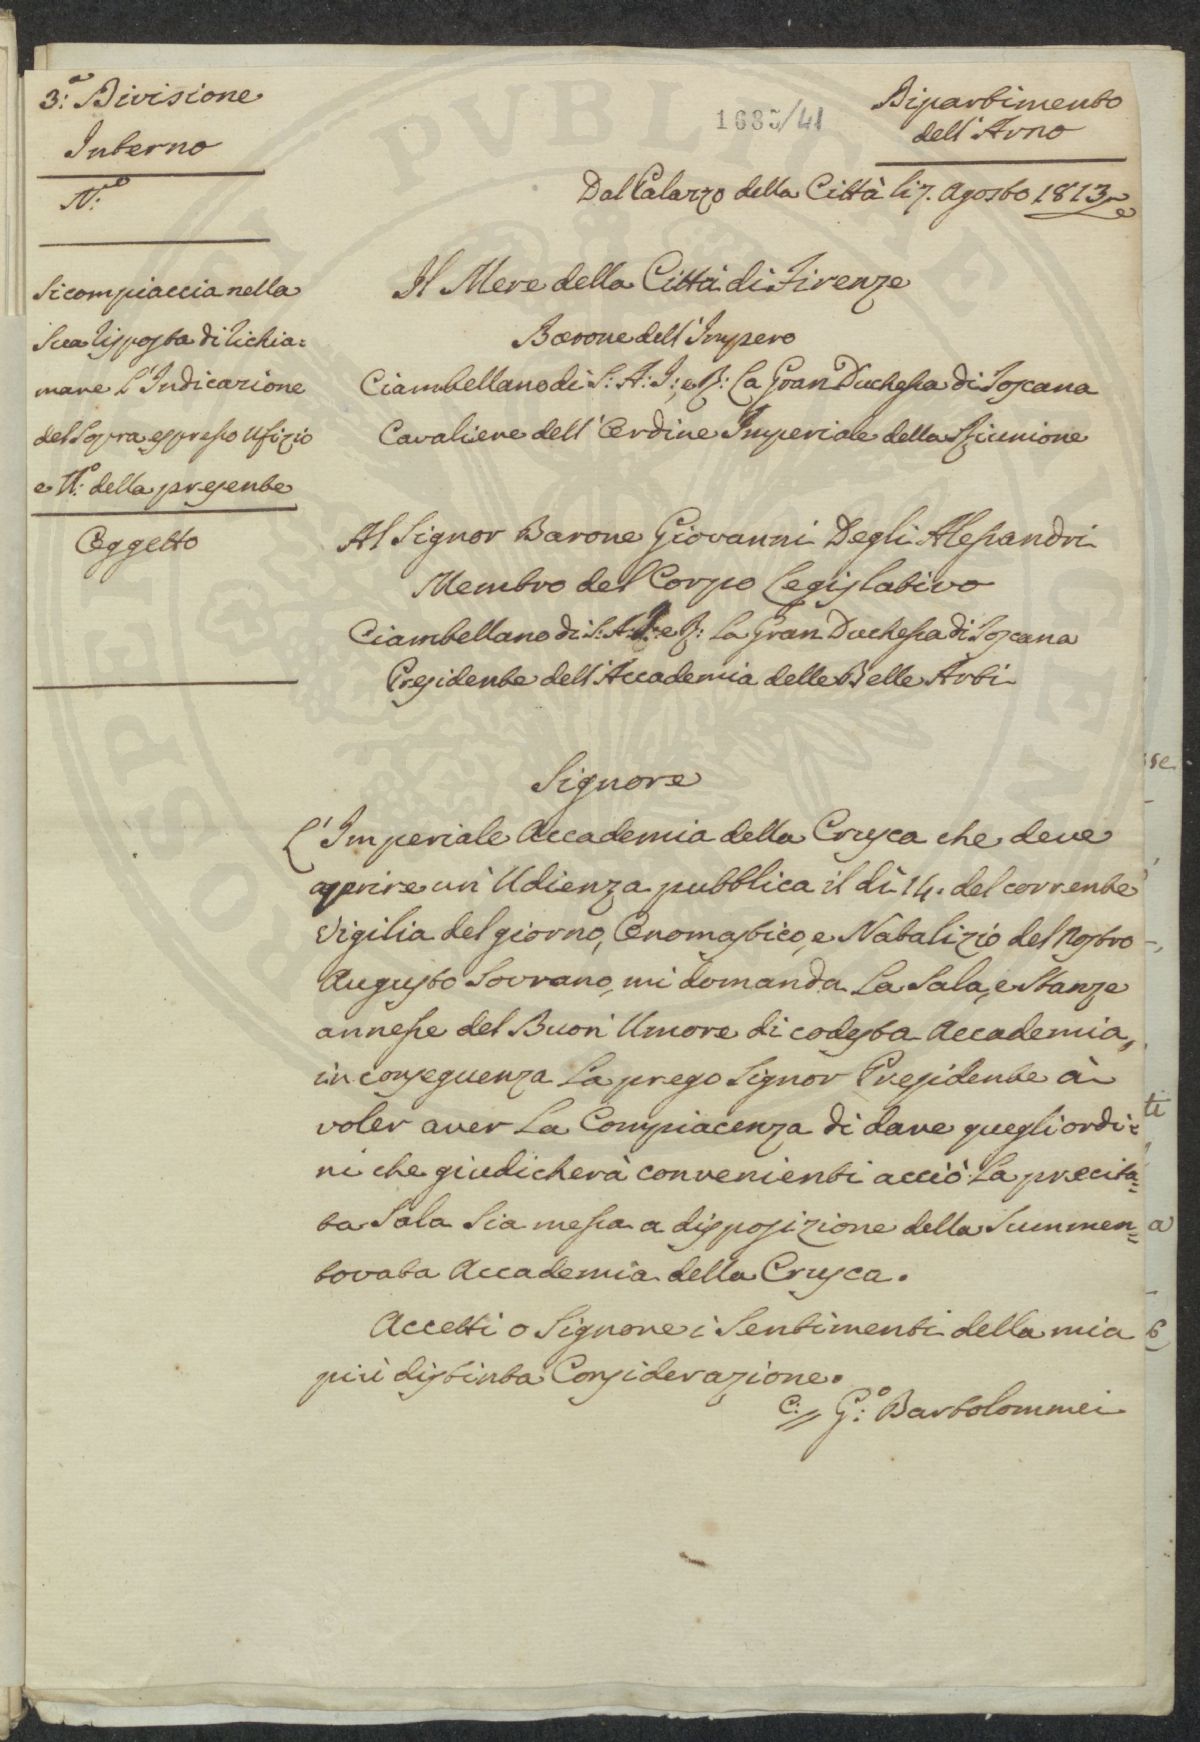 3.ª Divisione
Interno
N.º
Si compiaccia nella
Sua risposta di richia=
mare L'Indicazione
del Sopra espresso Ufizio
e N.º della presente
Oggetto
1685/41
Dipartimento
dell'Arno
Dal Palazzo della Città li 7. Agosto 1813
Il Mere della Città di Firenze
Barone dell'Impero
Ciambellano di S: A: I: e R: La Gran Duchessa di Toscana
Cavaliere dell'Ordine Imperiale della Riunione
Al Signor Barone Giovanni Degli Alessandri
Membro del Corpo Legislativo
Ciambellano di S: A: I: e R: La Gran Duchessa di Toscana
Presidente dell'Accademia delle Belle Arti
Signore
L'Imperiale Accademia della Crusca che deve
aprire un'Udienza pubblica il dì 14. del corrente
Vigilia del giorno, Onomastico, e Natalizio del Nostro
Augusto Sovrano, mi domanda La Sala, e Stanze
annesse del Buon'Umore di codesta Accademia,
in conseguenza La prego Signor Presidente à
voler aver La Compiacenza di dare quegli ordi=
ni che giudicherà convenienti acciò La precita=
ta Sala Sia messa a disposizione della Summen=
tovata Accademia della Crusca.
Accetti o Signore i Sentimenti della mia
più distinta Considerazione.
G.º Bartolommei